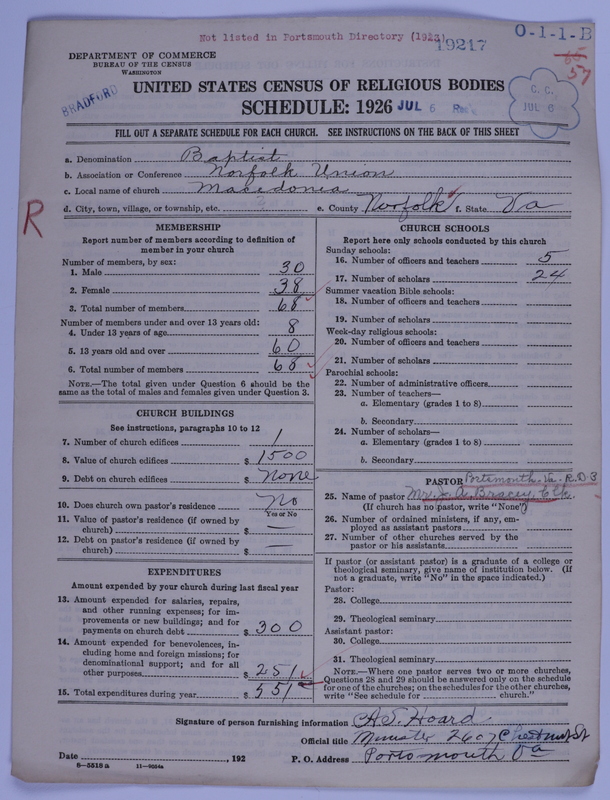 Not listed in Portsmouth Directory (1923)
19217
0-1-1-B
57
DEPARTMENT OF COMMERCE
BUREAU OF THE CENSUS
WASHINGTON
BRADFORD
UNITED STATES CENSUS OF RELIGIOUS BODIES
SCHEDULE: 1926
JUL 6 Rec
C. C.
JUL 6
FILL OUT A SEPARATE SCHEDULE FOR EACH CHURCH. SEE INSTRUCTIONS ON THE BACK OF THIS SHEET
a. Denomination Baptist
b. Association or Conference Norfolk Union
c. Local name of church Macedonia
d. City, town, village, or township, etc. e. County Norfolk f. State Va
R
MEMBERSHIP
Report number of members according to definition of
member in your church
Number of members, by sex:
1. Male 30
2. Female 38
3. Total number of members 68
Number of members under and over 13 years old:
4. Under 13 years of age 8
5. 13 years old and over 60
6. Total number of members 68
NOTE.—The total given under Question 6 should be the
same as the total of males and females given under Question 3.
CHURCH BUILDINGS
See instructions, paragraphs 10 to 12
7. Number of church edifices 1
8. Value of church edifices $ 1500
9. Debt on church edifices $ none
10. Does church own pastor's residence No
Yes or No
11. Value of pastor's residence (if owned by
church) $ —
12. Debt on pastor's residence (if owned by
church) $ —
EXPENDITURES
Amount expended by your church during last fiscal year
13. Amount expended for salaries, repairs,
and other running expenses; for im-
provements or new buildings; and for
payments on church debt $ 300
14. Amount expended for benevolences, in-
cluding home and foreign missions; for
denominational support; and for all
other purposes $ 251
15. Total expenditures during year $ 551
CHURCH SCHOOLS
Report here only schools conducted by this church
Sunday schools:
16. Number of officers and teachers 5
17. Number of scholars 24
Summer vacation Bible schools:
18. Number of officers and teachers
19. Number of scholars
Week-day religious schools:
20. Number of officers and teachers
21. Number of scholars
Parochial schools:
22. Number of administrative officers
23. Number of teachers—
a. Elementary (grades 1 to 8)
b. Secondary
24. Number of scholars—
a. Elementary (grades 1 to 8)
b. Secondary
PASTOR Portsmouth. Va. R.D. 3
25. Name of pastor Mr. J. A. Bracey, Clk.
(If church has no pastor, write "None")
26. Number of ordained ministers, if any, em-
ployed as assistant pastors
27. Number of other churches served by the
pastor or his assistants
If pastor (or assistant pastor) is a graduate of a college or
theological seminary, give name of institution below. (If
not a graduate, write "No" in the space indicated.)
Pastor:
28. College
29. Theological seminary
Assistant pastor:
30. College
31. Theological seminary
NOTE.—Where one pastor serves two or more churches,
Questions 28 and 29 should be answered only on the schedule
for one of the churches; on the schedules for the other churches,
write "See schedule for church."
Signature of person furnishing information A. S. Hoard
Official title Minister 2607 Chestnut St
Date , 192 P. O. Address Portsmouth Va
8-5518 a 11-9024a